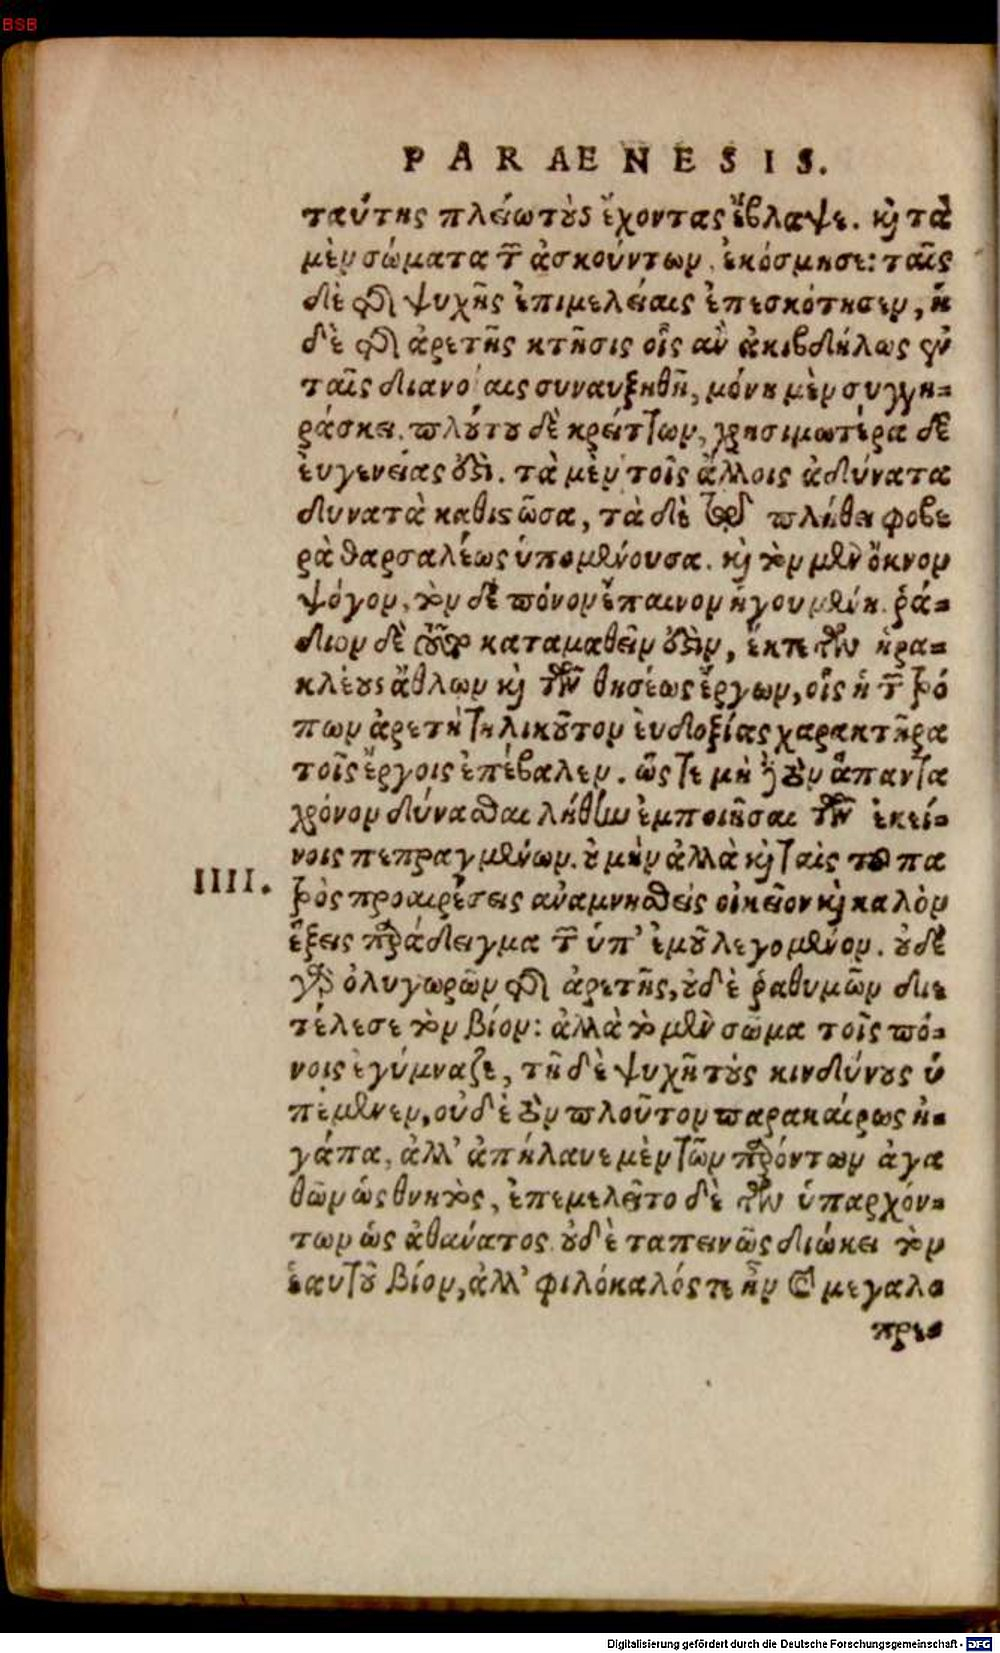 BSB
PARAENESIS.
ταύτης πλείω τοὺς ἔχοντας ἔβλαψε. καὶ τὰ
μὲν σώματα τῶν ἀσκούντων ἐκόσμησε: ταῖς
δὲ τῆς ψυχῆς ἐπιμελείαις ἐπεσκότησεν, ἡ
δὲ τῆς ἀρετῆς κτῆσις οἷς ἂν ἀκιβδήλως ἐν
ταῖς διανοίαις συναυξηθῇ, μόνη μὲν συγγη-
ράσκει. πλούτου δὲ κρείττων, χρησιμωτέρα δὲ
εὐγενείας ὅστι. τὰ μὲν τοῖς ἄλλοις ἀδύνατα
δυνατὰ καθιστῶσα, τὰ δὲ τῷ πλήθει φοβε
ρὰ θαρσαλέως ὑπομένουσα. καὶ τὸν μὲν ὄκνον
ψόγον, τὸν δὲ πόνον ἔπαινον ἡγουμένη. ῥά-
διον δὲ τοῦτο καταμαθεῖν ὅστιν, ἔκ τε τῶν ἡρα-
κλέους ἄθλων καὶ τῶν θησέως ἔργων, οἷς ἡ τῶν τρό
πων ἀρετὴ τηλικοῦτον εὐδοξίας χαρακτῆρα
τοῖς ἔργοις ἐπέβαλεν. ὥστε μηδὲ τὸν ἅπαντα
χρόνον δύνασθαι λήθην ἐμποιῆσαι τῶν ἐκεί-
νοις πεπραγμένων. οὐ μὴν ἀλλὰ καὶ ταὶς τοῦ πα
IIII.
τρὸς προαιρέσεις ἀναμνησθεὶς οἰκεῖον καὶ καλὸν
ἕξεις παράδειγμα τῶν ὑπ' ἐμοῦ λεγομένον. οὐδὲ
γὰρ ὀλυγωρῶν τῆς ἀρετῆς, οὐδὲ ῥαθυμῶν διε
τέλεσε τὸν βίον: ἀλλὰ τὸ μὲν σῶμα τοῖς πό-
νοις ἐγύμναζε, τῇ δὲ ψυχῇ τοὺς κινδύνους ὑ
πέμενεν, οὐδὲ τὸν πλοῦτον παρακαίρως ἠ-
γάπα, ἀλλ' ἀπήλαυε μὲν τῶν παρόντων ἀγα
θῶν ὡς θνητὸς, ἐπεμελεῖτο δὲ τῶν ὑπαρχόν-
των ὡς ἀθάνατος. οὐδὲ ταπεινῶς διώκει τὸν
ἑαυτοῦ βίον, ἀλλ' φιλόκαλός τε ἦν καὶ μεγαλο
πρε-
Digitalisierung gefördert durch die Deutsche Forschungsgemeinschaft - DFG